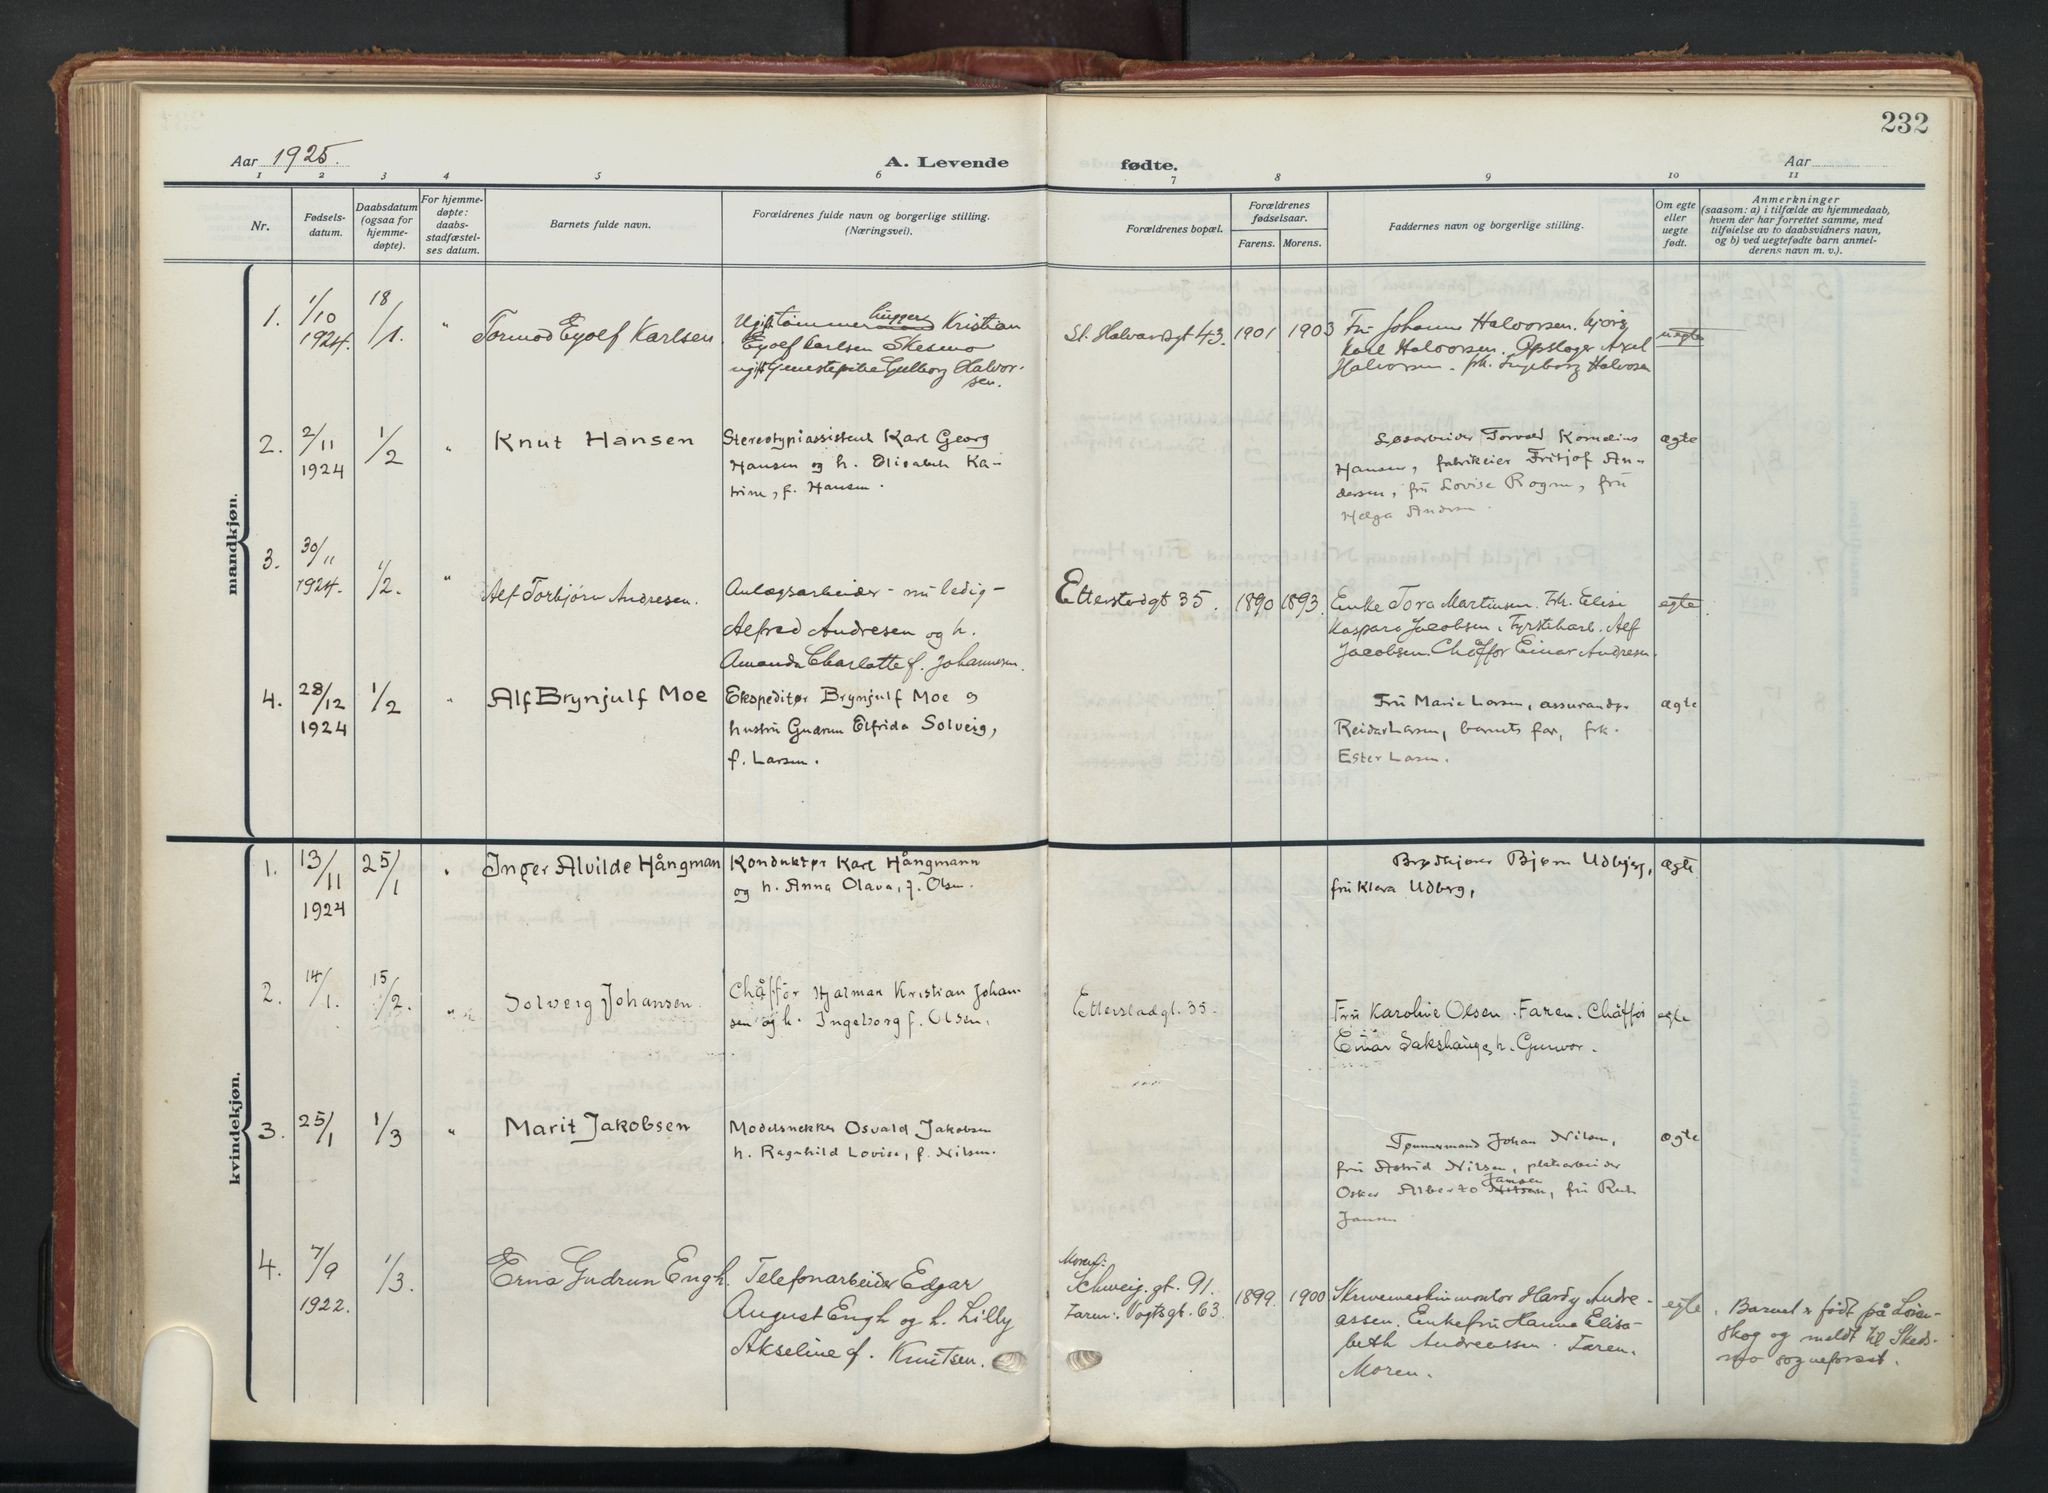 232
Aar 1925.
A. Levende
fødte.
Aar
1 2 3 4 5 6 7 8 9 10 11
Nr.
Fødsels-
datum.
Daabsdatum
(ogsaa for
hjemme-
døpte).
For hjemme-
døpte:
daabs-
stadfæstel-
ses datum.
Barnets fulde navn.
Forældrenes fulde navn og borgerlige stilling.
(Næringsvei).
Forældrenes bopæl.
Forældrenes
fødselsaar.
Farens. Morens.
Faddernes navn og borgerlige stilling.
Om egte
eller
uegte
født.
Anmerkninger
(saasom: a) i tilfælde av hjemmedaab,
hvem der har forrettet samme, med
tilføielse av to daabsvidners navn,
og b) ved uegtefødte barn anmel-
derens navn m. v.).
mandkjøn.
1.
1/10
1924.
18/1.
"
Tormod Eyolf Karlsen.
Ugift tømmerhugger Kristian
Eyolf Karlsen Skesmo
ugift Gullborg Halvor-
sen.
St. Halvardsgt 43.
1901
1903
Fru Johanne Halvorsen.
Karl Halvorsen. Opslager Axel
Halvorsen. frk. Ingeborg Halvorsen
uegte
2.
2/11
1924
1/2
"
Knut Hansen
Stereotypiassistent Karl Georg
Hansen og h. Elisabeth Ka-
trine, f. Hansen.
Løsarbeider Torvald Kornelius
Hansen, fabrikeier Fritjof An-
dersen, frü Lovise Rogne, frü
Helga Andersen.
ægte
3.
30/11
1924.
1/2.
"
Alf Torbjørn Andresen.
Anlægsarbeider - nu ledig -
Alfred Andresen og h.
Amanda Charlotte f. Johannesen.
Etterstadgt 35.
1890
1893.
Enke Tora Martinsen. Frk. Elise
Kaspara Jacobsen. Alf
Jacobsen. Chåffør Einar Andresen.
egte.
4.
28/12
1924
1/2
"
Alf Brynjulf Moe
Ekspeditør Brynjulf Moe og
hustrü Gudrun Elfrida Solveig,
f. Larsen.
Frü Marie Larsen, assurandør
Reidar Larsen, barnets far, frk.
Ester Larsen.
ægte
kvindekjøn.
1.
13/11
1924
25/1
"
Inger Alvilde Hångman
Konduktør Karl Hångmann
og h. Anna Olava, f. Olsen.
Brødkjører Bjørn Udbjerg,
frü Klara Udberg,
ægte
2.
14/1.
15/2.
"
Solveig Johansen.
Chåffør Hjalmar Kristian Johan-
sen og h. Ingeborg f. Olsen.
Etterstadgt. 35.
Frü Karoline Olsen. Faren. Chåffør
Einar Sakshaug, h. Gunvor.
egte
3.
25/1
1/3
"
Marit Jakobsen
Modelsnekker Osvald Jakobsen
h. Ragnhild Lovise, f. Nilsen.
Tømmermand Johan Nilsen,
frü Astrid Nilsen, platearbeider
Oskar Alberto Jansen, frü Ruth
Jansen
ægte
4.
7/9
1922.
1/3.
Erna Gudrun Engh.
Telefonarbeider Edgar
August Engh og h. Lilly
Akseline f. Knutsen.
Moren:
Schweig. gt. 91.
Faren: Vogtsgt. 63.
1899.
1900
Skrivemaskinmontør Hardy Andre-
assen. Enkefrü Hanna Elisa-
beth Andreassen. Faren.
Moren.
egte
Barnet er født på Løren-
skog og meldt til Skeds-
mo sogneforset.